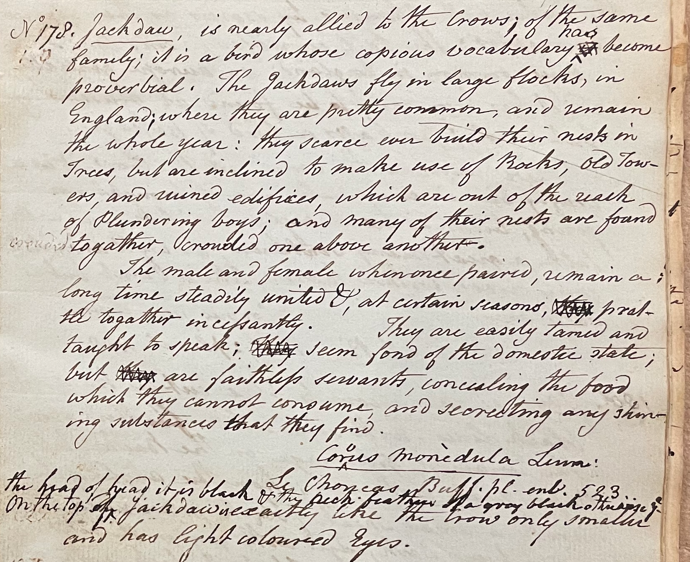 No 178. Jackdaw, is nearly allied to the Crows; of the same
family; it is a bird whose copious vocabulary has become
proverbial. The Jackdaws fly in large flocks, in
England; where they are pretty common, and remain
the whole year: they scarce ever build their nests in
Trees, but are inclined to make use of Rocks, Old Tow-
ers, and ruined edifices, which are out of the reach
of Plundering boys; and many of their nests are found
togather, crouded one above another.
The male and female when once paired, remain a
long time steadily united &, at certain seasons, prat-
tle togather incessantly. They are easily tamed and
taught to speak; seem fond of the domestic state;
but are faithless servants, concealing the food
which they cannot consume, and secreting any shin-
ing substances that they find.
Corvus monedula Linn:
Le Choucas Buff. pl. enl. 523
the head of head it is black & the neck feathers of a grey black otherwise
On the top of Jackdaw is exactly like the Crow only smaller
and has light coloured Eyes.